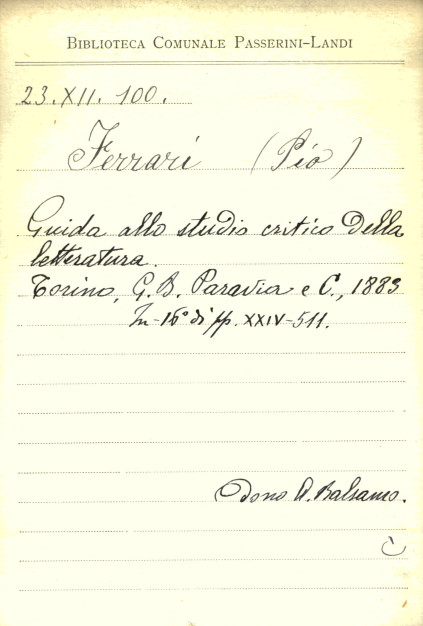 BIBLIOTECA COMUNALE PASSERINI-LANDI
23.XII. 100.
Ferrari (Pio)
Guida allo studio critico della
letteratura.
Torino, G. B. Paravia e C., 1883
In-16° di pp. XXIV-511.
Dono A. Balsamo.